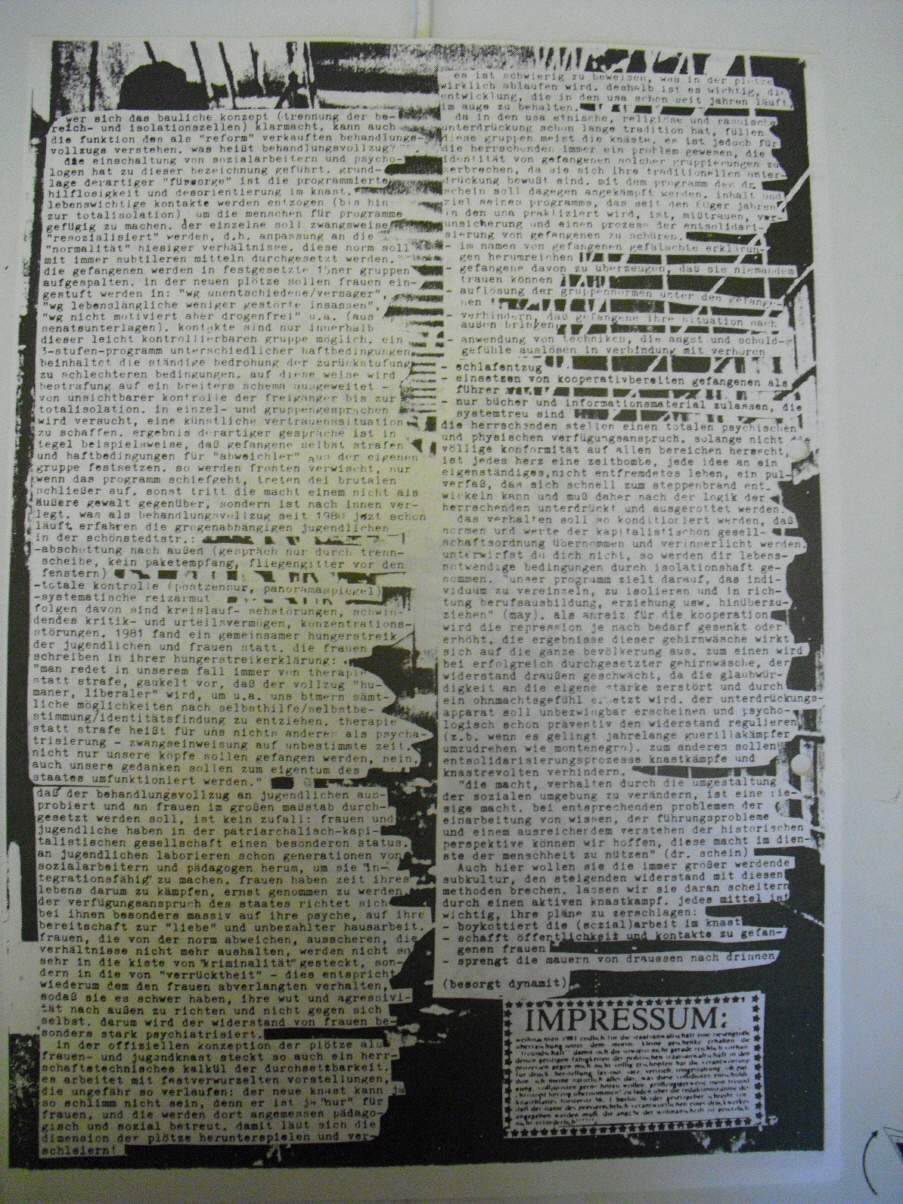 wer sich das bauliche konzept (trennung der be-
reich- und isolationszellen) klarmacht, kann auch
die funktion des als "reform" verkauften behandlungs-
vollzugs verstehen. was heißt behandlungsvollzug?
die einschaltung von sozialarbeitern und psycho-
logen hat zu dieser bezeichnung geführt. grund-
lage derartiger "fürsorge" ist die programmierte
hilflosigkeit und desorientierung im knast.
lebenswichtige kontakte werden entzogen (bis hin
zur totalisolation), um die menschen für programme
gefügig zu machen. der einzelne soll zwangsweise
"resozialisiert" werden, d.h. anpassung an die
"normalität" hiesiger verhältnisse. diese norm soll
mit immer subtileren mitteln durchgesetzt werden.
die gefangenen werden in festgesetzte 15ner gruppen
aufgespalten. in der neuen plötze sollen frauen ein-
gestuft werden in: "wg unentschiedene/versager",
"wg lebenslängliche weniger gestörte insassen",
"wg nicht motiviert aber drogenfrei" u.a. (aus
senatsunterlagen). kontakte sind nur innerhalb
dieser leicht kontrollierbaren gruppe möglich. ein
3-stufen-programm unterschiedlicher haftbedingungen
beinhaltet die ständige bedrohung der zurückstufung
zu schlechteren bedingungen. auf diese weise wird
bestrafung auf ein breiters schema ausgeweitet -
von unsichtbarer kontrolle der freigänger bis zur
totalisolation. in einzel- und gruppengesprächen
wird versucht, eine künstliche vertrauenssituation
zu schaffen. ergebnis derartiger gespräche ist in
tegel beispielsweise, daß gefangene selbst strafen
und haftbedingungen für "abweichler" aus der eigenen
gruppe festsetzen. so werden fronten verwischt, nur
wenn das programm schiefgeht, treten dei brutalen
schließer auf. sonst tritt die macht einem nicht als
äußere gewalt gegenüber, sondern ist nach innen ver-
legt. was als behandlungsvollzug seit 1980 jezt schon
läuft, erfahren die grogenabhängigen jugendlichen
in der schönstedtstr.:
-abschottung nach außen (gespräch nur durch trenn-
scheibe, kein paketempfang, fliengengitter vor den
fenstern)
-totale kontrolle (postzensur, panoramaspiegel)
-systematische reizarmut
folgen davon sind kreislauf- sehstörungen, schwin-
dendes kritik- und urteilsvermögen, konzentrations-
störungen. 1981 fand ein gemeinsamer hungerstreik
der jugendlichen und frauen statt. die frauen
schreiben in ihrer hungerstreikerklärung:
"man redet in unserem fall immer von therapie
statt strafe, gaukelt vor, daß der vollzug "hu-
maner, liberaler" wird, um u.a. uns btmern sämt-
liche möglichkeiten nach selbsthilfe/selbstbe-
stimmung/identitätsfindung zu entziehen. therapie
statt strafe heißt für uns nichts anderes als psycha-
trisierung - zwangseinweisung auf unbestimmte zeit.
nicht nur unsere köpfe sollen gefangen werden, nein,
auch unsere gedanken sollen zum eigentum des
staates umfunktioniert werden."
daß der behandlungsvollzug an jugendlichen aus-
probiert und an frauen im großen maßstab durch-
gesetzt werden soll, ist kein zufall: frauen und
jugendliche haben in der patriarchalisch-kapi-
talistischen gesellschaft einen besonderen status.
an jugendlichen laborieren schon generationen von
sozialarbeitern und pädagogen herum, um sie "in-
tegrationsfähig" zu machen. frauen haben zeit ihres
lebens darum zu kämpfen, ernst genommen zu werden,
der verfügungsanspruch des staates richtet sich
bei ihnen besonders massiv auf ihre psyche, auf ihre
bereitschaft zur "liebe" und unbezahlter hausarbeit.
frauen, die von der norm abweichen, ausscheren, die
verhältnisse nicht mehr aushalten, werden nicht so
sehr in die kiste von "kriminalität" gesteckt, son-
dern in die von "verrücktheit" - dies entspricht
wiederum dem den frauen abverlangten verhalten,
sodaß sie es schwer haben, ihre wut und agressivi-
tät nach außen zu richten und nicht gegen sich
selbst. darum wird der widerstand von frauen be-
sonders stark psychiatrisiert.
in der offiziellen konzeption der plötze als
frauen- und jugendknast steckt so auch ein herr-
schaftstechnisches kalkül der durchsetzbarkeit.
es arbeitet mit festverwurzelten vorstellungen,
die ungefähr so verlaufen: der neue knast kann ja
so schlimm nicht sein, denn er ist ja "nur" für
frauen, und die werden dort angemessen pädago-
gisch und sozial betreut. damit läut sich die
dimension der plötze herunterspielen und ver-
schleiern!
es ist schwierig zu beweisen, was in der plötze
wirklich ablaufen wird. deshalb ist es wichtig, die
entwicklung, die in den usa schon seit jahren läuft,
im auge zu behalten.
da in den usa etnische, religiöse und rassische
unterdrückung schon lange tradition hat, füllen
diese gruppen meist die knäste. es ist jedoch für
die herrschenden immer ein problem gewesen, die
identität von gefangenen solcher gruppierungen zu
zerbrechen, da sie sich ihre traditionellen unter-
drückung bewußt sind. mit dem programm des dr.
schein soll dagegen angekämpft werden. inhalt und
ziel seines programms, das seit den 60ger jahren
in den usa praktiziert wird, ist, mißtrauen, ver-
unsicherung und einen prozess der entsolidari-
sierung von gefangenen zu schüren.
- im namen von gefangenen gefälschte erklärun-
gen herumreichen
- gefangene davon zu überzeugen, daß sie niemandem
trauen können
- auflösung der gruppennormen unter den gefange-
nen
- verhindern, daß gefangene ihre situation nach
außen bringen
- anwendung von techniken, die angst und schuld-
gefühle auslösen in verbindung mit verhören
- schlafentzug
- einsetzen von kooperativbereiten gefangenen als
führer
- nur bücher und informationsmaterial zulassen, die
systemtreu sind
die herrschenden stellen einen totalen psychischen
und physischen verfügungsanspruch. solange nicht
völlige konformität auf allen bereichen herrscht,
ist jedes herz eine zeitbombe, jede idee an ein
eigenständiges, nicht entfremdetes leben, ein pul-
verfaß, das sich schnell zum steppenbrand ent-
wickeln kann und muß daher nach der logik der
herrschenden unterdrückt und ausgerottet werden.
das verhalten soll so konditioniert werden, daß
normen und werte der kapitalistischen gesell-
schaftsordnung übernommen und verinnerlicht werden.
unterwirfst du dich nicht, so werden dir lebens-
notwendige bedingungen durch isolationshaft ge-
nommen. "unser programm zielt darauf, das indi-
viduum zu vereinzeln, zu isolieren und in rich-
tung berufsausbildung, erziehung usw. hinüberzu-
ziehen" (may). als anreiz für die kooperation
wird die repression je nach bedarf gesenkt oder
erhöht. die ergebnisse dieser gehirnwäsche wirkt
sich auf die ganze bevölkerung aus. zum einen wird
bei erfolgreich durchgesetzter gehirnwäsche, der
widerstand draußen geschwächt, da die glaubwür-
digkeit an die eigene stärke zerstört und durch
ein ohnmachtsgefühl ersetzt wird. der unterdrückungs-
apparat soll unbezwingbar erscheinen und psycho-
logisch schon präventiv den widerstand regulieren
(z.b. wenn es gelingt jahrelange guerillakämpfer
umzudrehen wie montenegro). zum anderen sollen
entsolidarisierungsprozesse knastkämpfe und
knastrevolten verhindern.
"die macht, verhalten durch die umgestaltung
der sozialen umgebung zu verändern, ist eine rie-
sige macht. bei entsprechenden problemen der
einarbeitung von wissen, der führungsprobleme
und einem ausreicherdem verstehen der historischen
perspektive können wir hoffen, diese macht im dien-
ste der menschheit zu nützen" (dr. schein)
Auch hier wollen sie die immer größer werdende
subkultur, den steigenden widerstand mit diesen
methoden brechen. lassen wir sie daran scheitern
durch einen aktiven knastkampf. jedes mittel ist
wichtig, ihre pläne zu zerschlagen:
- boykottiert die (sozial)arbeit im knast
- schafft öffentlichkeit und kontakte zu gefan-
genen frauen
- sprengt die mauern von draussen nach drinnen
(besorgt dynamit)
IMPRESSUM: